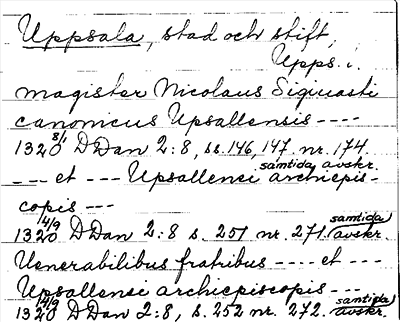 Uppsala, stad och stift,
Upps. l.
magister Nicolaus Sigwasti
canonicus Upsallensis ----
1320 8/1 DDan 2:8, ss. 146, 147. nr. 174.
samtida avskr.
--- et --- Upsallensi archiepis-
copis ---
1320 14/9 DDan 2:8 s. 251 nr. 271. samtida avskr.
Venerabilibus fratribus ---- et ---
Upsallensi archiepiscopis ---
1320 14/9 DDan 2:8, s. 252 nr. 272. samtida avskr.